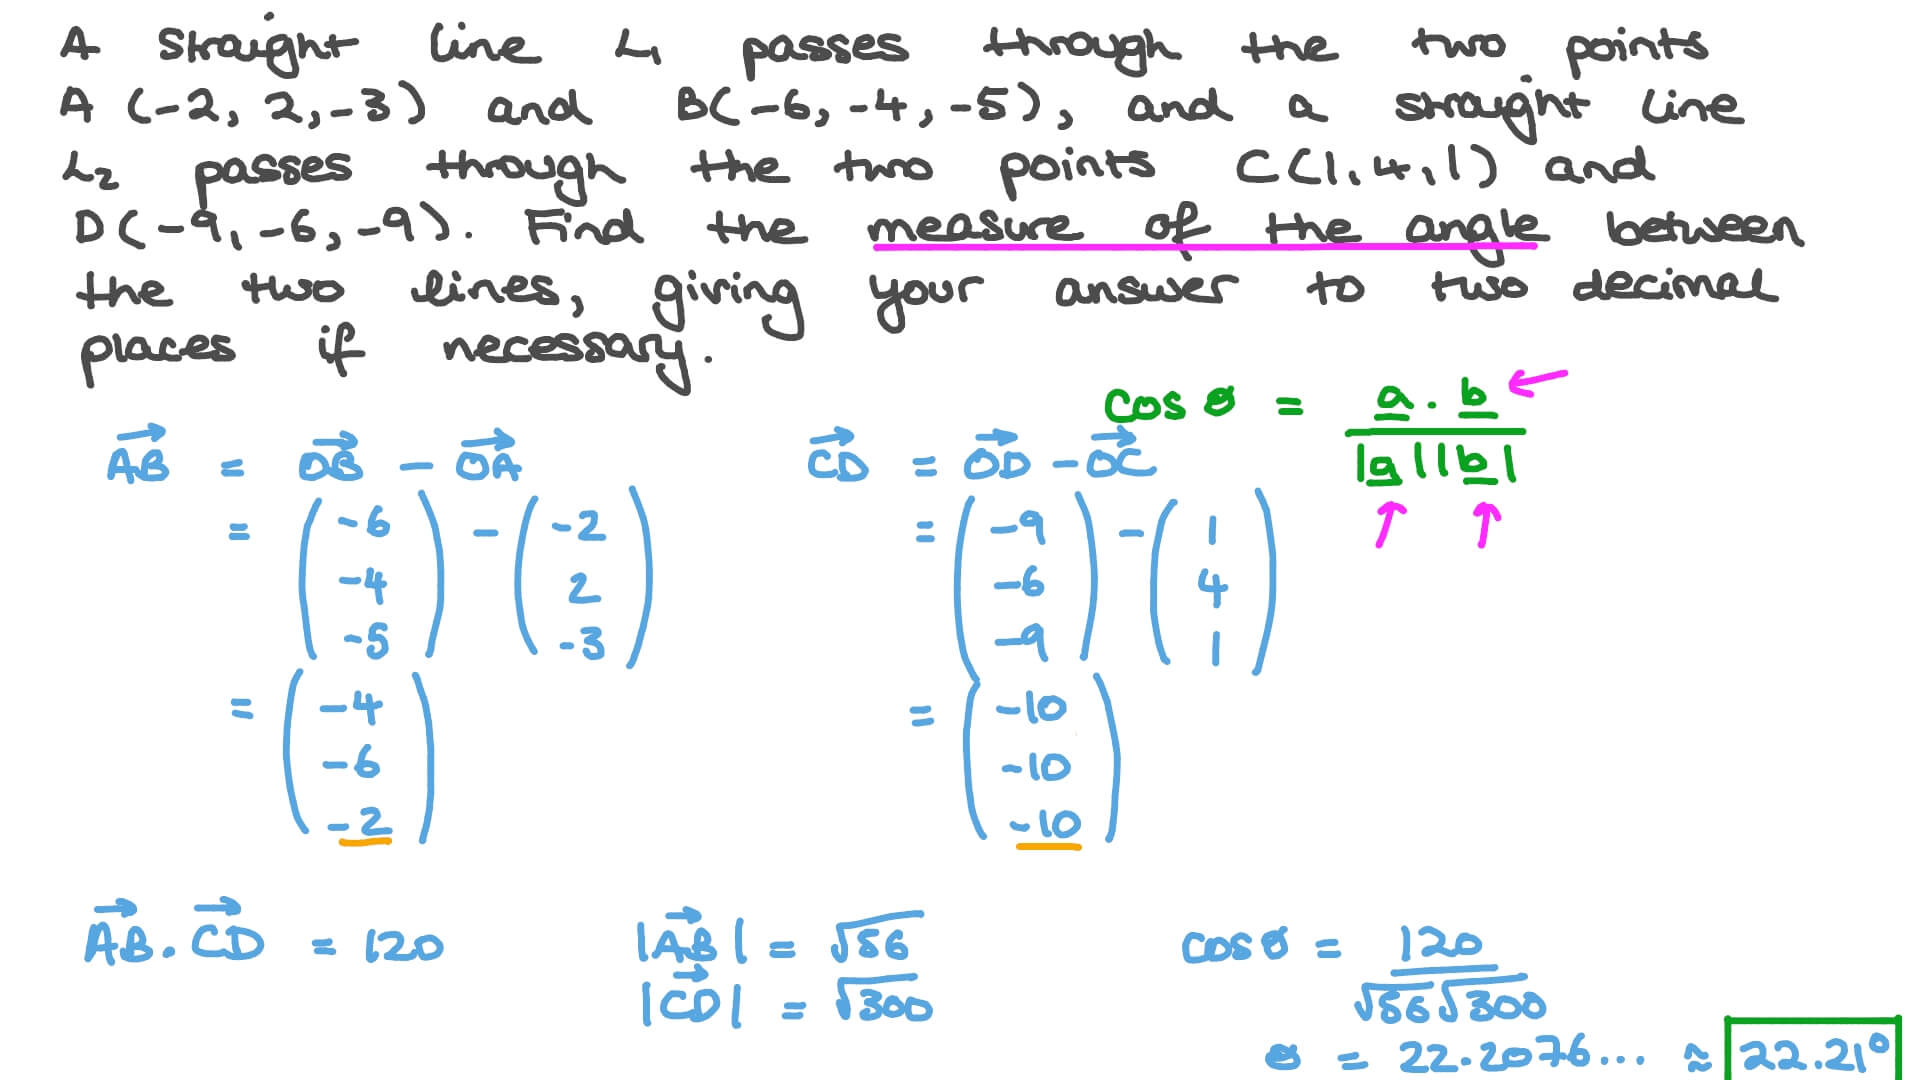 A straight line L₁ passes through the two points
A (-2, 2, -3) and B(-6, -4, -5), and a straight line
L₂ passes through the two points C(1, 4, 1) and
D(-9, -6, -9). Find the measure of the angle between
the two lines, giving your answer to two decimal
places if necessary.
cos θ = a . b
|a||b|
AB = OB - OA
= -6 - -2
-4 2
-5 -3
= -4
-6
-2
CD = OD - OC
= -9 - 1
-6 4
-9 1
= -10
-10
-10
AB . CD = 120
|AB| = √56
|CD| = √300
cos θ = 120
√56 √300
θ = 22.2076... ≈ 22.21°